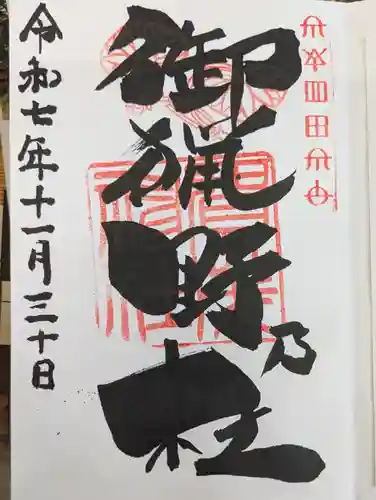 御猟野乃杜
令和七年十一月三十日